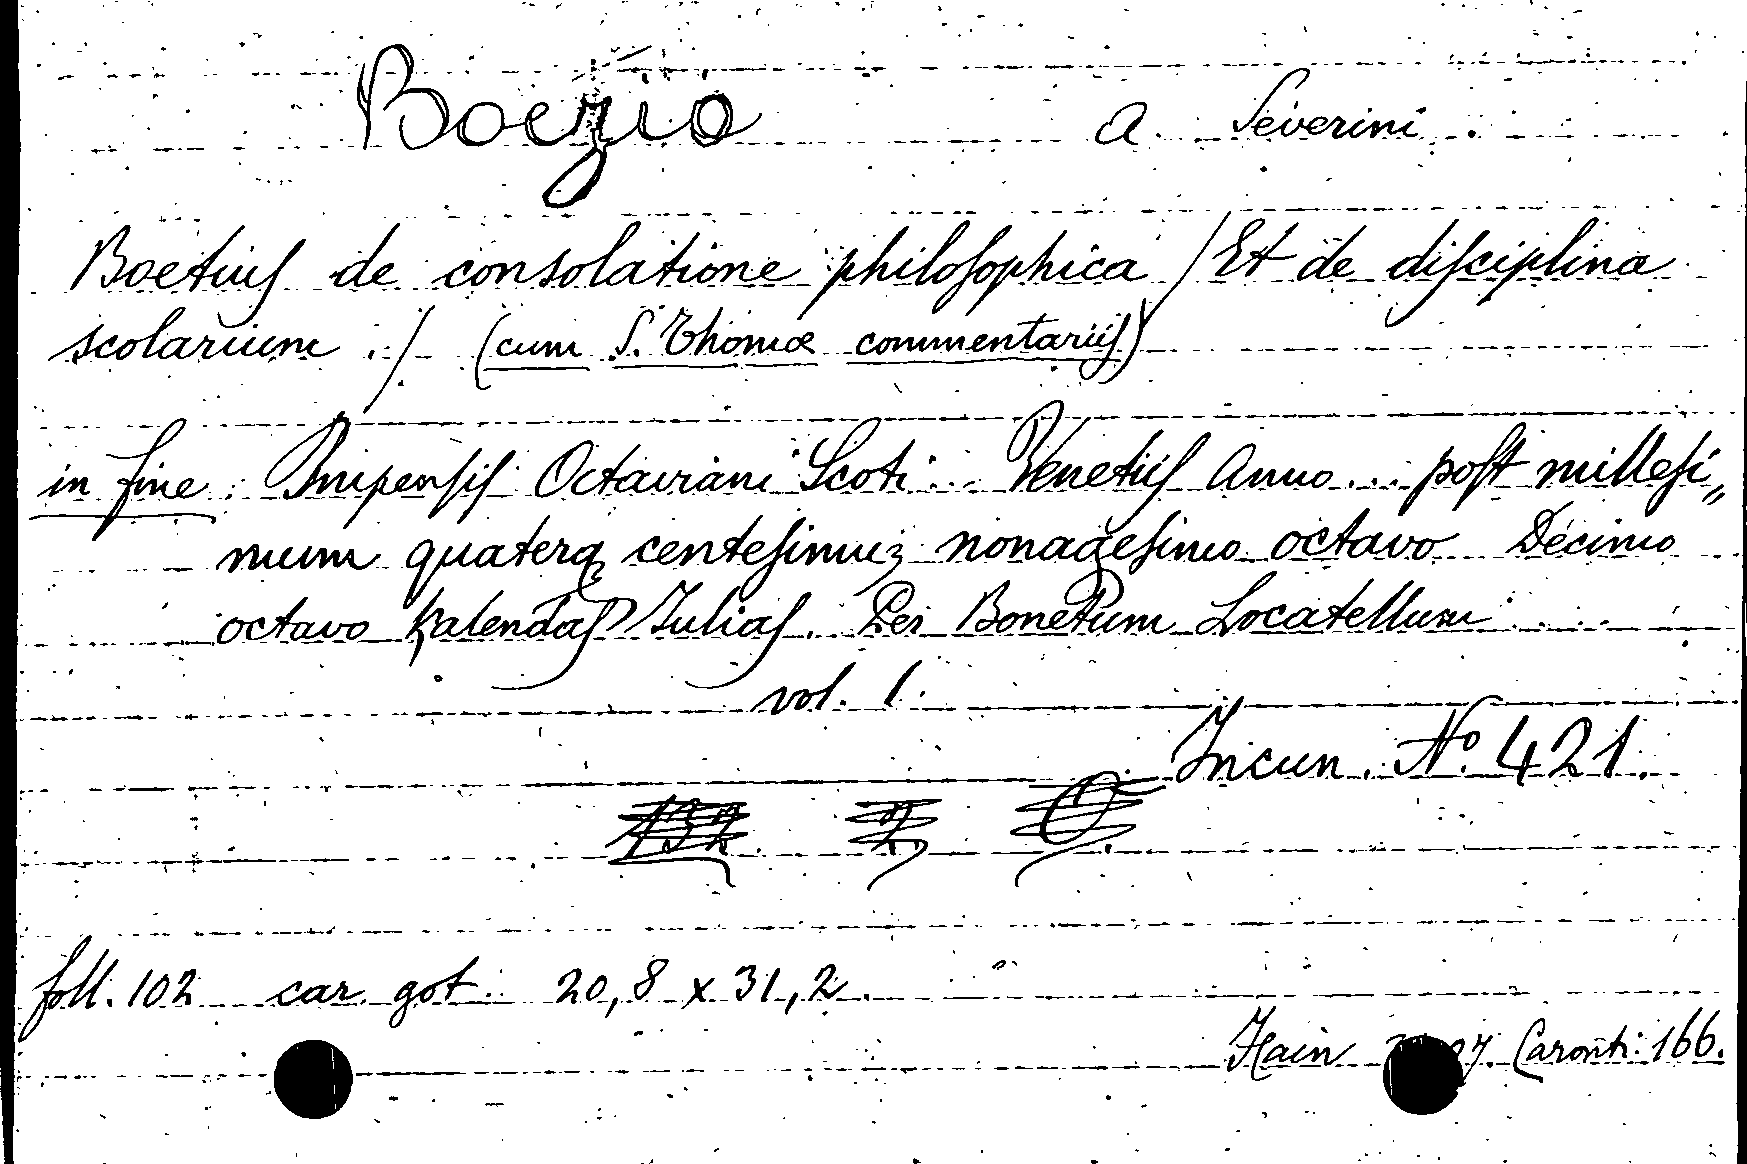 Boezio A. Severini.
Boetiuſ de consolatione philoſophica / Et de diſciplina
scolarium :/ (cum S. Thomæ commentariiſ)
in fine: Impenſiſ Octaviani Scoti... Venetiiſ Anno... poſt milleſi„
mum quaterq centeſimuz nonageſimo octavo Decimo
octavo kalendaſ Iuliaſ. Per Bonetum Locatellum
vol. 1.
Incun. Nº 421.
foll. 102 car. got. 20,8 x 31,2.
Hain Caronti: 166.